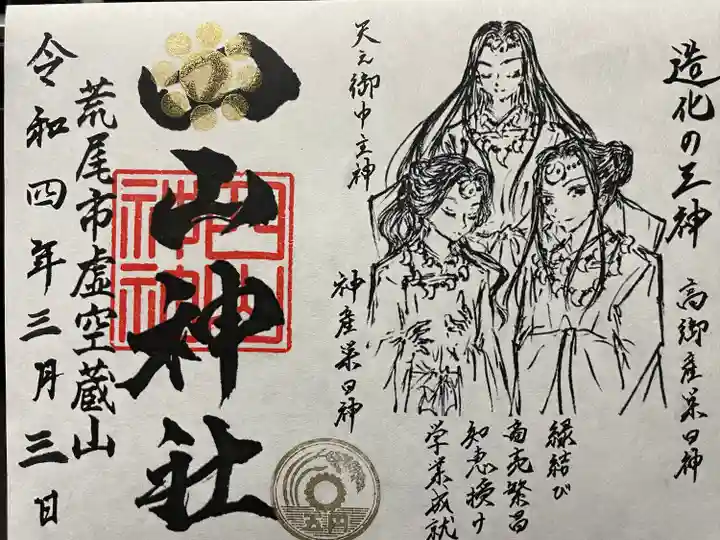 造化の三神
高御産巣日神
天之御中主神
神産巣日神
縁結び
商売繁昌
知恵授け
学業成就
五円
四山神社
四山神社
荒尾市虚空蔵山
令和四年三月三日